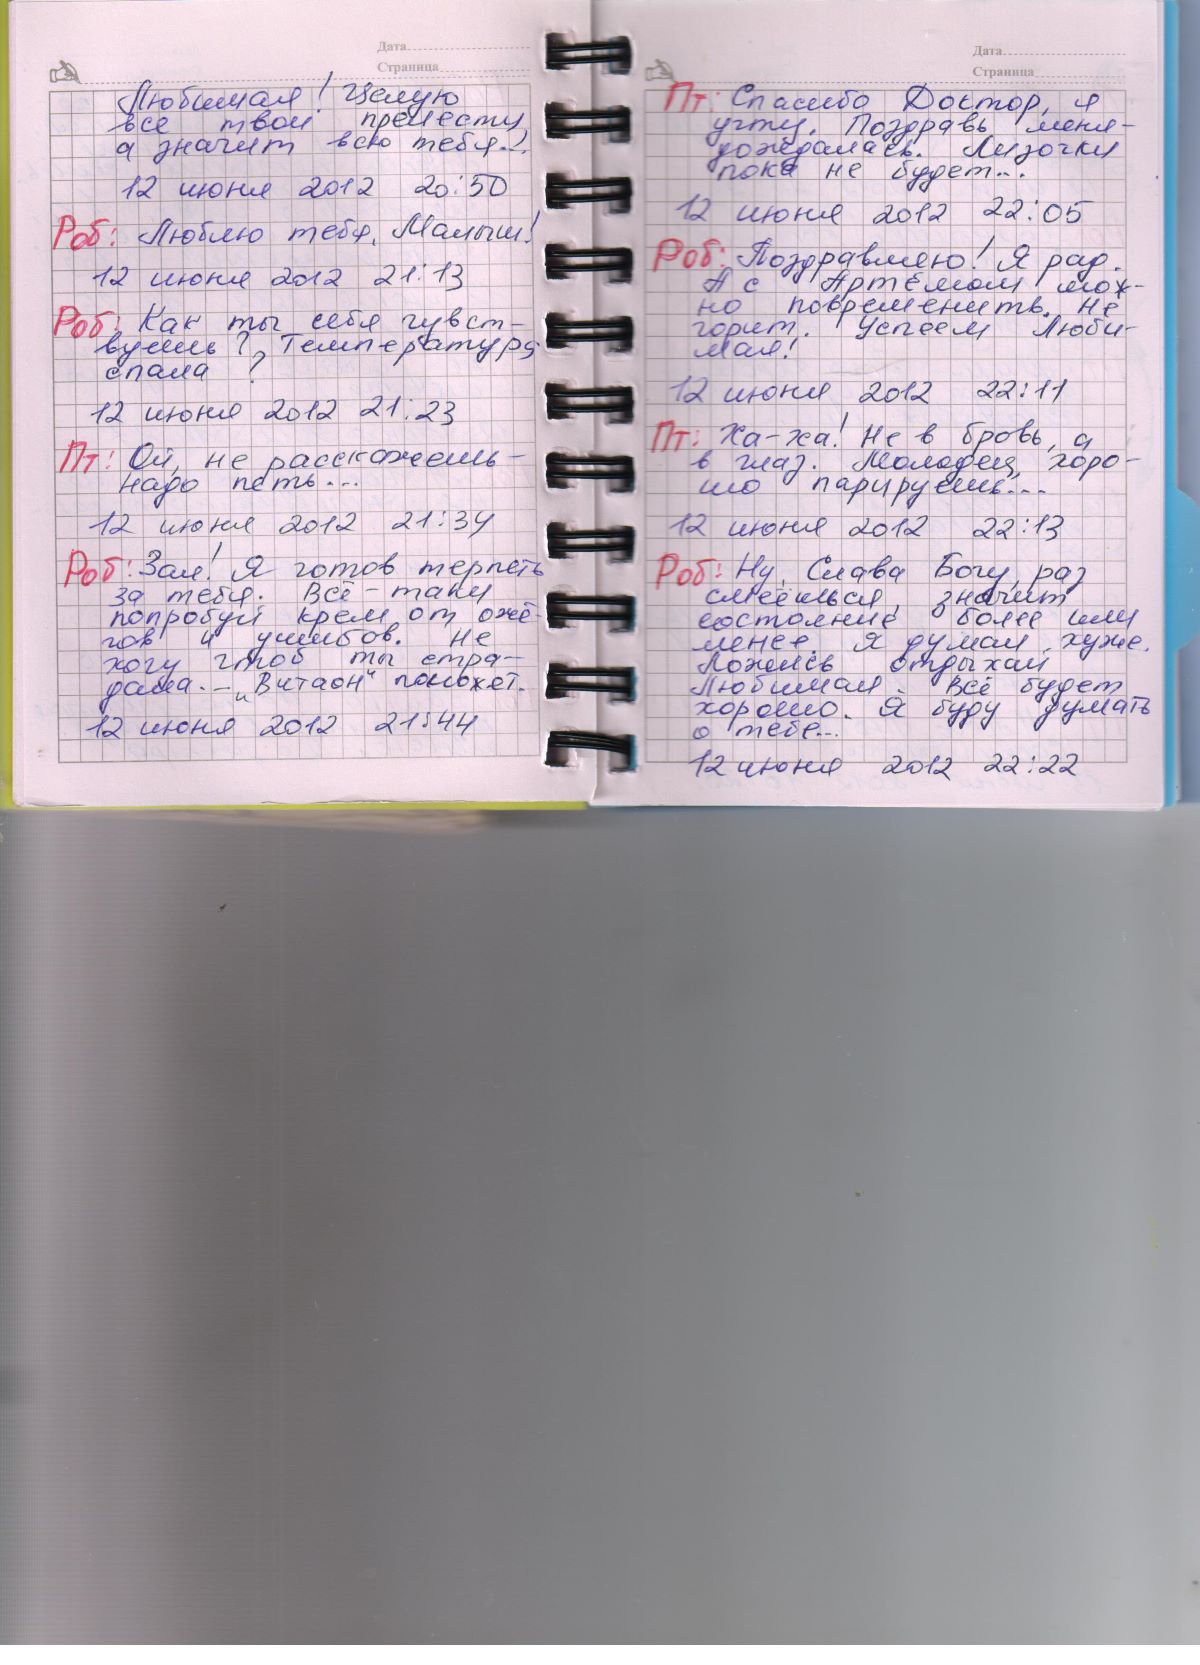 Дата
Страница
Любимая! Целую
все твои прелести
а значит всю тебя..!
12 июня 2012 20:50
Роб: Люблю тебя, Малыш!
12 июня 2012 21:13
Роб: Как ты себя чувст-
вуешь? Температура
спала ?
12 июня 2012 21:23
Пт: Ой, не расскажешь -
надо петь...
12 июня 2012 21:34
Роб: Зая! Я готов терпеть
за тебя. Всё-таки
попробуй крем от ожё-
гов и ушибов. Не
хочу чтоб ты стра-
дала. - „Витаон“ поможет.
12 июня 2012 21:44
Дата
Страница
Пт: Спасибо Доктор, я
учту. Поздравь меня-
дождалась. Лизочки
пока не будет...
12 июня 2012 22:05
Роб: Поздравляю! Я рад.
А с Артёмом мож-
но повременить. Не
горит. Успеем Люби-
мая!
12 июня 2012 22:11
Пт: Ха-ха! Не в бровь, а
в глаз. Молодец, хоро-
шо парируешь...
12 июня 2012 22:13
Роб: Ну, Слава Богу, раз
смеёшься, значит
состояние более или
менее. Я думал хуже.
Ложись отдыхай
Любимая. Всё будет
хорошо. Я буду думать
о тебе...
12 июня 2012 22:22